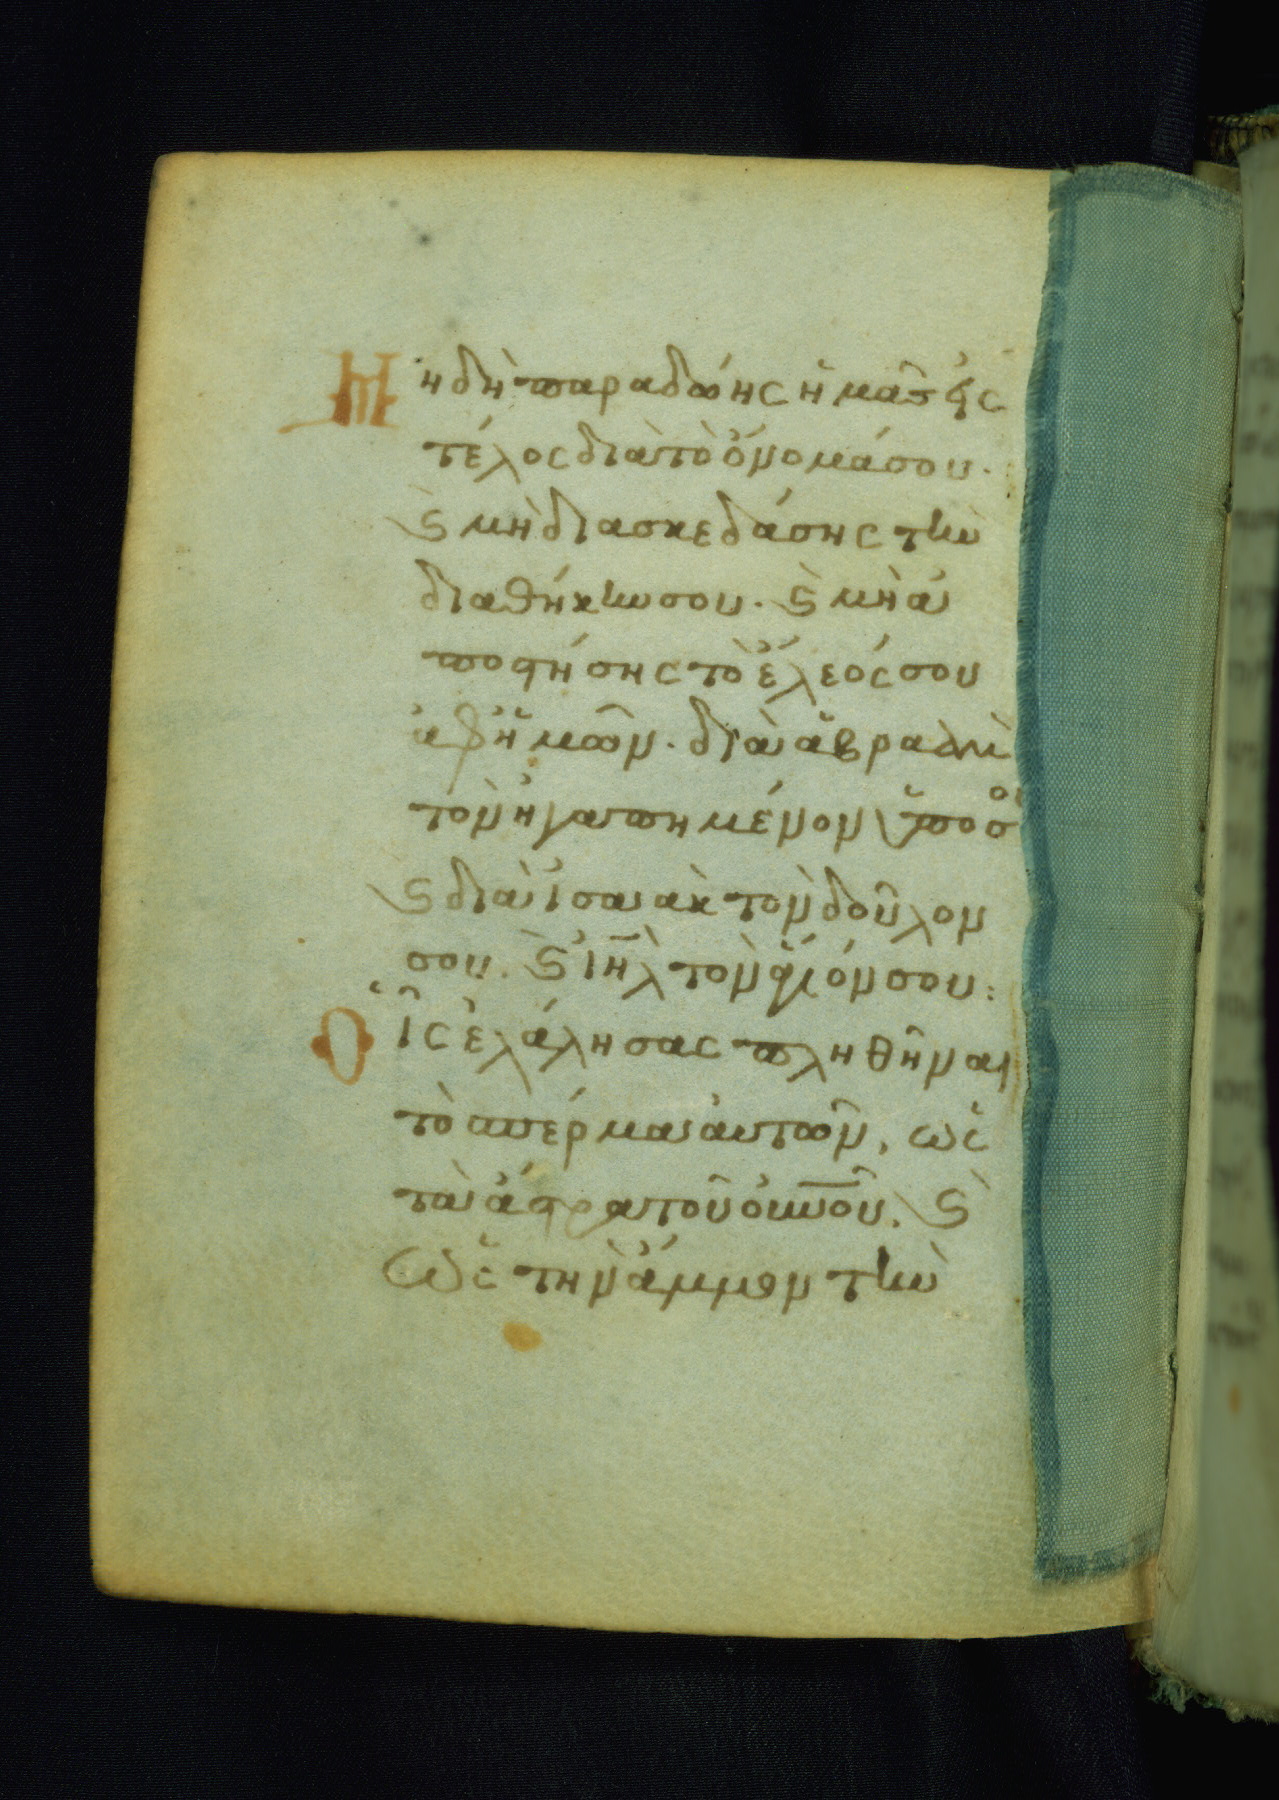 Μὴ δὴ παραδώης ἡμᾶς εἰς
τέλος διὰ τὸ ὄνομά σου.
ϛ μὴ διασκεδάσης τὴν
διαθήκην σου. ϛ μὴ ἀ
ποστήσης τὸ ἔλεός σου
ἀφ' ἡμῶν. διὰ ἀβραὰμ
τὸν ἠγαπημένον ὑπὸ σοῦ
ϛ διὰ ἰσαὰκ τὸν δοῦλον
σου. ϛ ἰηλ τὸν ἅγιόν σου:
Οἷς ἐλάλησας πληθῆναι
τὸ σπέρμα αὐτῶν, ὡς
τὰ ἄστρα τοῦ οὐνοῦ, ϛ
ὡς τὴν ἄμμον τὴν